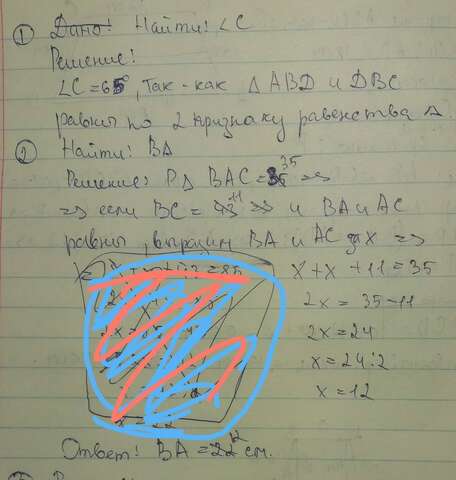 ① Дано! Найти! ∠C
Решение!
∠C = 65°, так-как △ ABD и DBC
равны по 2 признаку равенства △.
② Найти: BA
Решение: P△ BAC = 35 =>
=> если BC = 11 => и BA и AC
равны, выразим BA и AC за x =>
x + x + 11 = 35
2x = 35 - 11
2x = 24
x = 24:2
x = 12
Ответ! BA = 12 см.